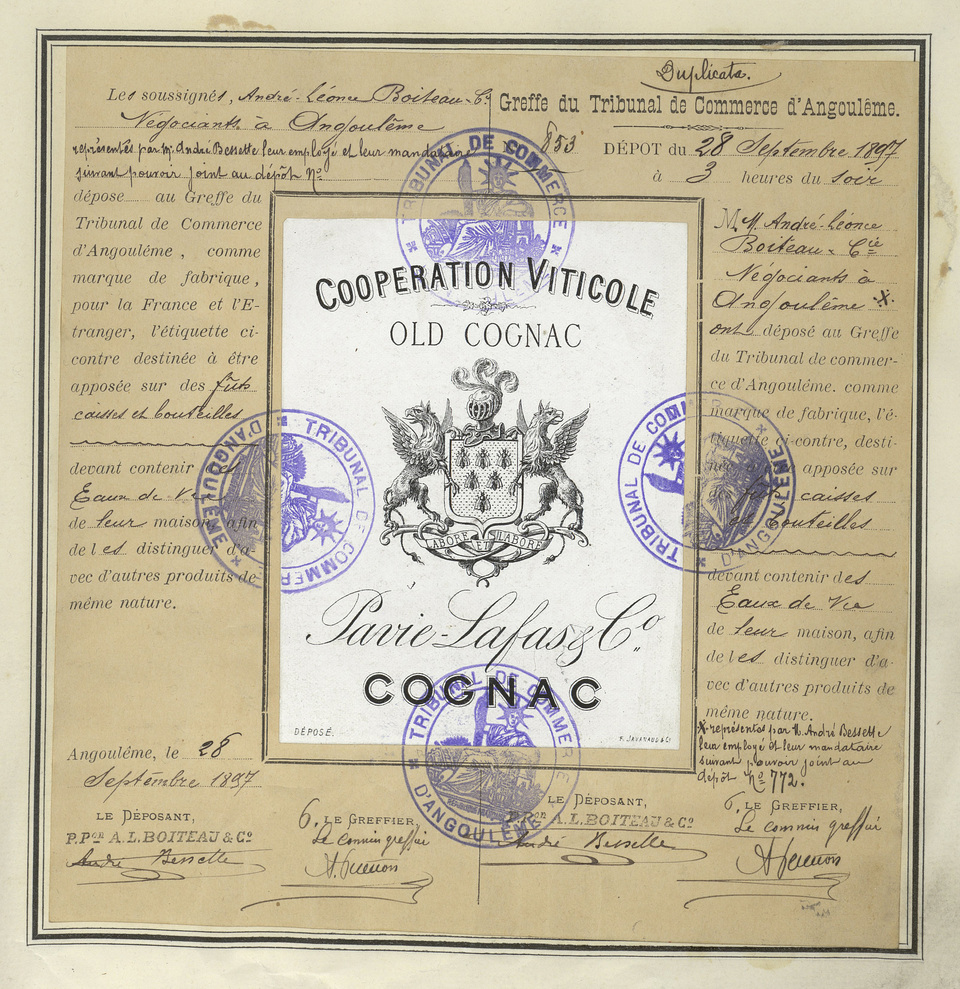 Duplicata.
Les soussignés, André-Léonce Boiteau & Cie
Négociants à Angoulême
représentés par Mr André Bessette leur employé et leur mandataire
suivant pouvoir joint au dépôt No
dépose au Greffe du
Tribunal de Commerce
d'Angoulême, comme
marque de fabrique,
pour la France et l'E-
tranger, l'étiquette ci-
contre destinée à être
apposée sur des fûts
caisses et bouteilles
devant contenir des
Eaux de Vie
de leur maison, afin
de les distinguer d'a-
vec d'autres produits de
même nature.
Angoulême, le 28
Septembre 1897
LE DÉPOSANT,
P.Pon A.L.BOITEAU & Co
André Bessette
6. LE GREFFIER,
Le commis greffier
853
Greffe du Tribunal de Commerce d'Angoulême.
DÉPOT du 28 Septembre 1897
à 3 heures du soir
M M. André-Léonce
Boiteau & Cie
Négociants à
Angoulême X.
ont déposé au Greffe
du Tribunal de commer-
ce d'Angoulême. comme
marque de fabrique, l'é-
tiquette ci-contre, desti-
née à être apposée sur
des fûts caisses
et bouteilles
devant contenir des
Eaux de Vie
de leur maison, afin
de les distinguer d'a-
vec d'autres produits de
même nature.
X représentés par M. André Bessette
leur employé et leur mandataire
suivant pouvoir joint au
dépôt No 772.
LE DÉPOSANT,
P.Pon A.L.BOITEAU & Co
André Bessette
6. LE GREFFIER,
Le commis greffier
COOPERATION VITICOLE
OLD COGNAC
LABORE ET LABORE
Pavie-Lafas & Co
COGNAC
DÉPOSÉ.
TRIBUNAL DE COMMERCE
TRIBUNAL DE COMMERCE D'ANGOULÊME
TRIBUNAL DE COMMERCE D'ANGOULÊME
TRIBUNAL DE COMMERCE D'ANGOULÊME